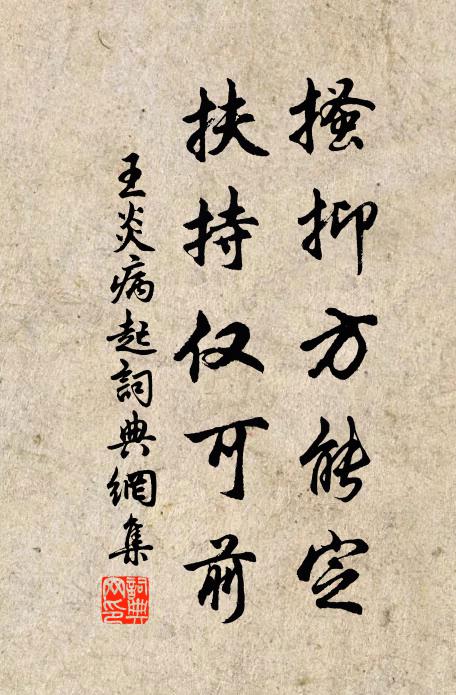 搔抑方能定
扶持仅可前
王炎病起詞典網集
詞典網印